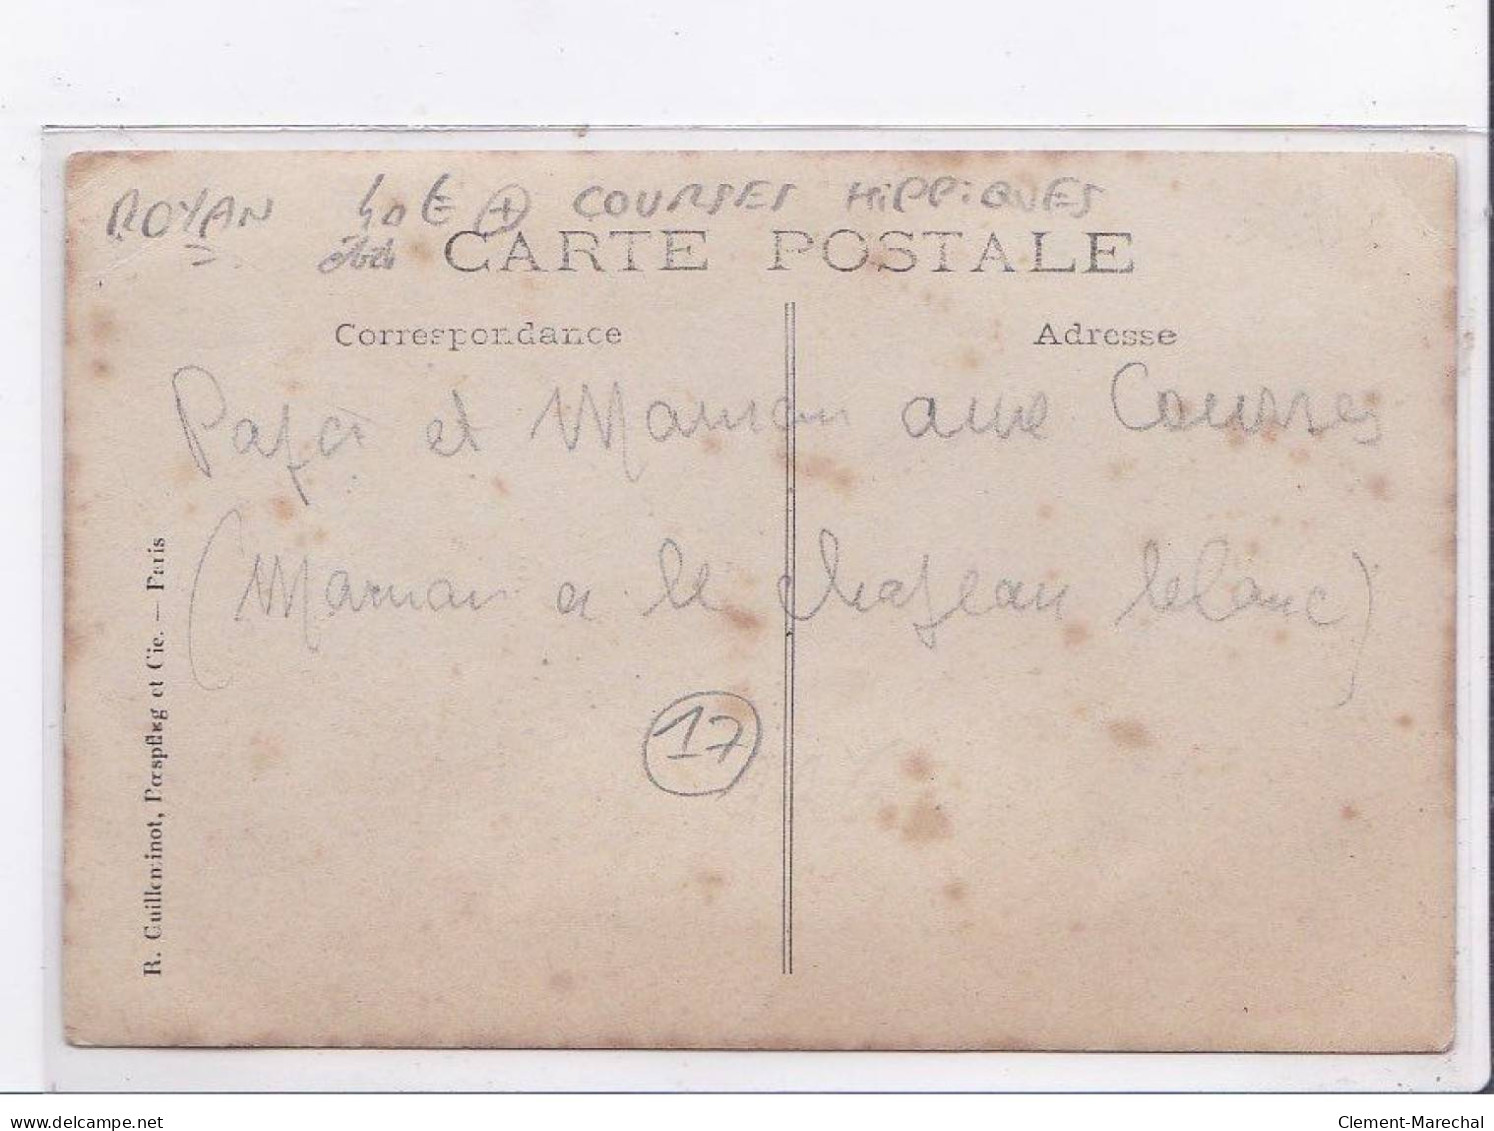 ROYAN 40 € + COURSES HIPPIQUES
CARTE POSTALE
Correspondance Adresse
Papa et Maman aux Courses
(Maman a le chapeau blanc)
17
R. Guilleminot, Bœspflug et Cie. — Paris
www.delcampe.net
Clement-Marechal